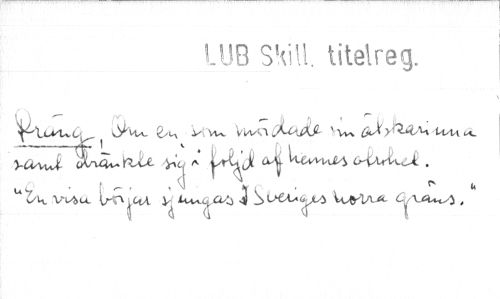 LUB Skill. titelreg.
Kräng, Om en som mördade sin älskarinna
samt dränkte sig i följd af hennes otrohet.
"En visa börjar sjungas I Sveriges norra gräns."